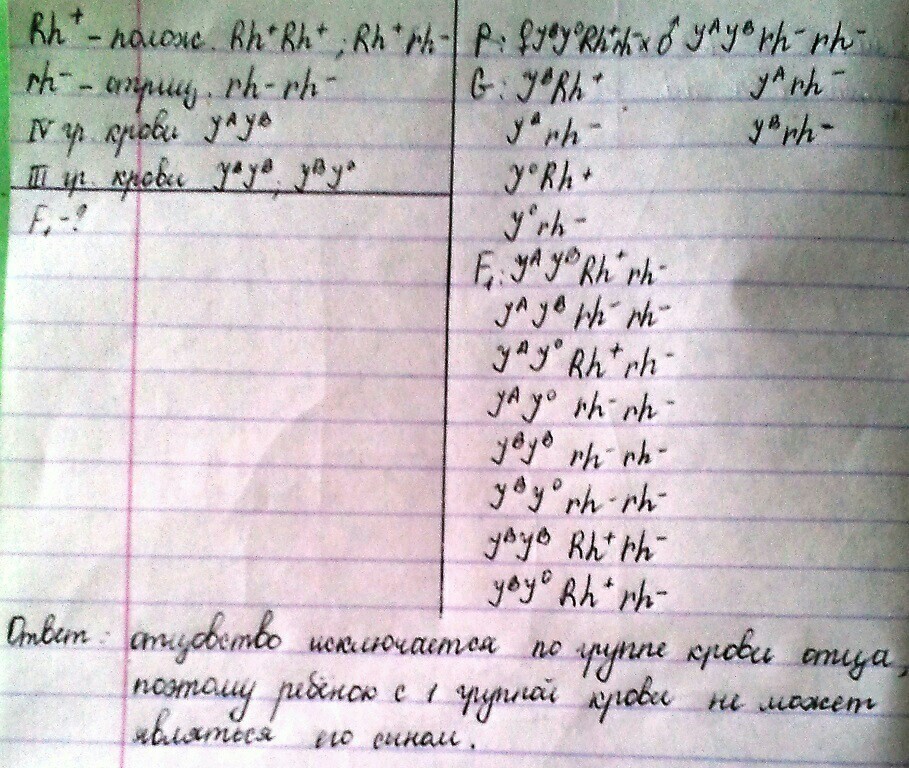 Rh⁺ – полож. Rh⁺Rh⁺; Rh⁺rh⁻
rh⁻ – отриц. rh⁻rh⁻
IV гр. крови YᴬYᴮ
III гр. крови YᴮYᴮ; YᴮY⁰
F₁ – ?
P: ♀YᴮY⁰Rh⁺rh⁻ × ♂ YᴬYᴮrh⁻rh⁻
G: YᴮRh⁺ Yᴬrh⁻
Yᴮrh⁻ Yᴮrh⁻
Y⁰Rh⁺
Y⁰rh⁻
F₁: YᴬYᴮRh⁺rh⁻
YᴬYᴮ rh⁻rh⁻
YᴬY⁰ Rh⁺rh⁻
YᴬY⁰ rh⁻rh⁻
YᴮYᴮ rh⁻rh⁻
YᴮY⁰ rh⁻rh⁻
YᴮYᴮ Rh⁺rh⁻
YᴮY⁰ Rh⁺rh⁻
Ответ: отцовство исключается по группе крови отца,
поэтому ребёнок с 1 группой крови не может
являться его сином.